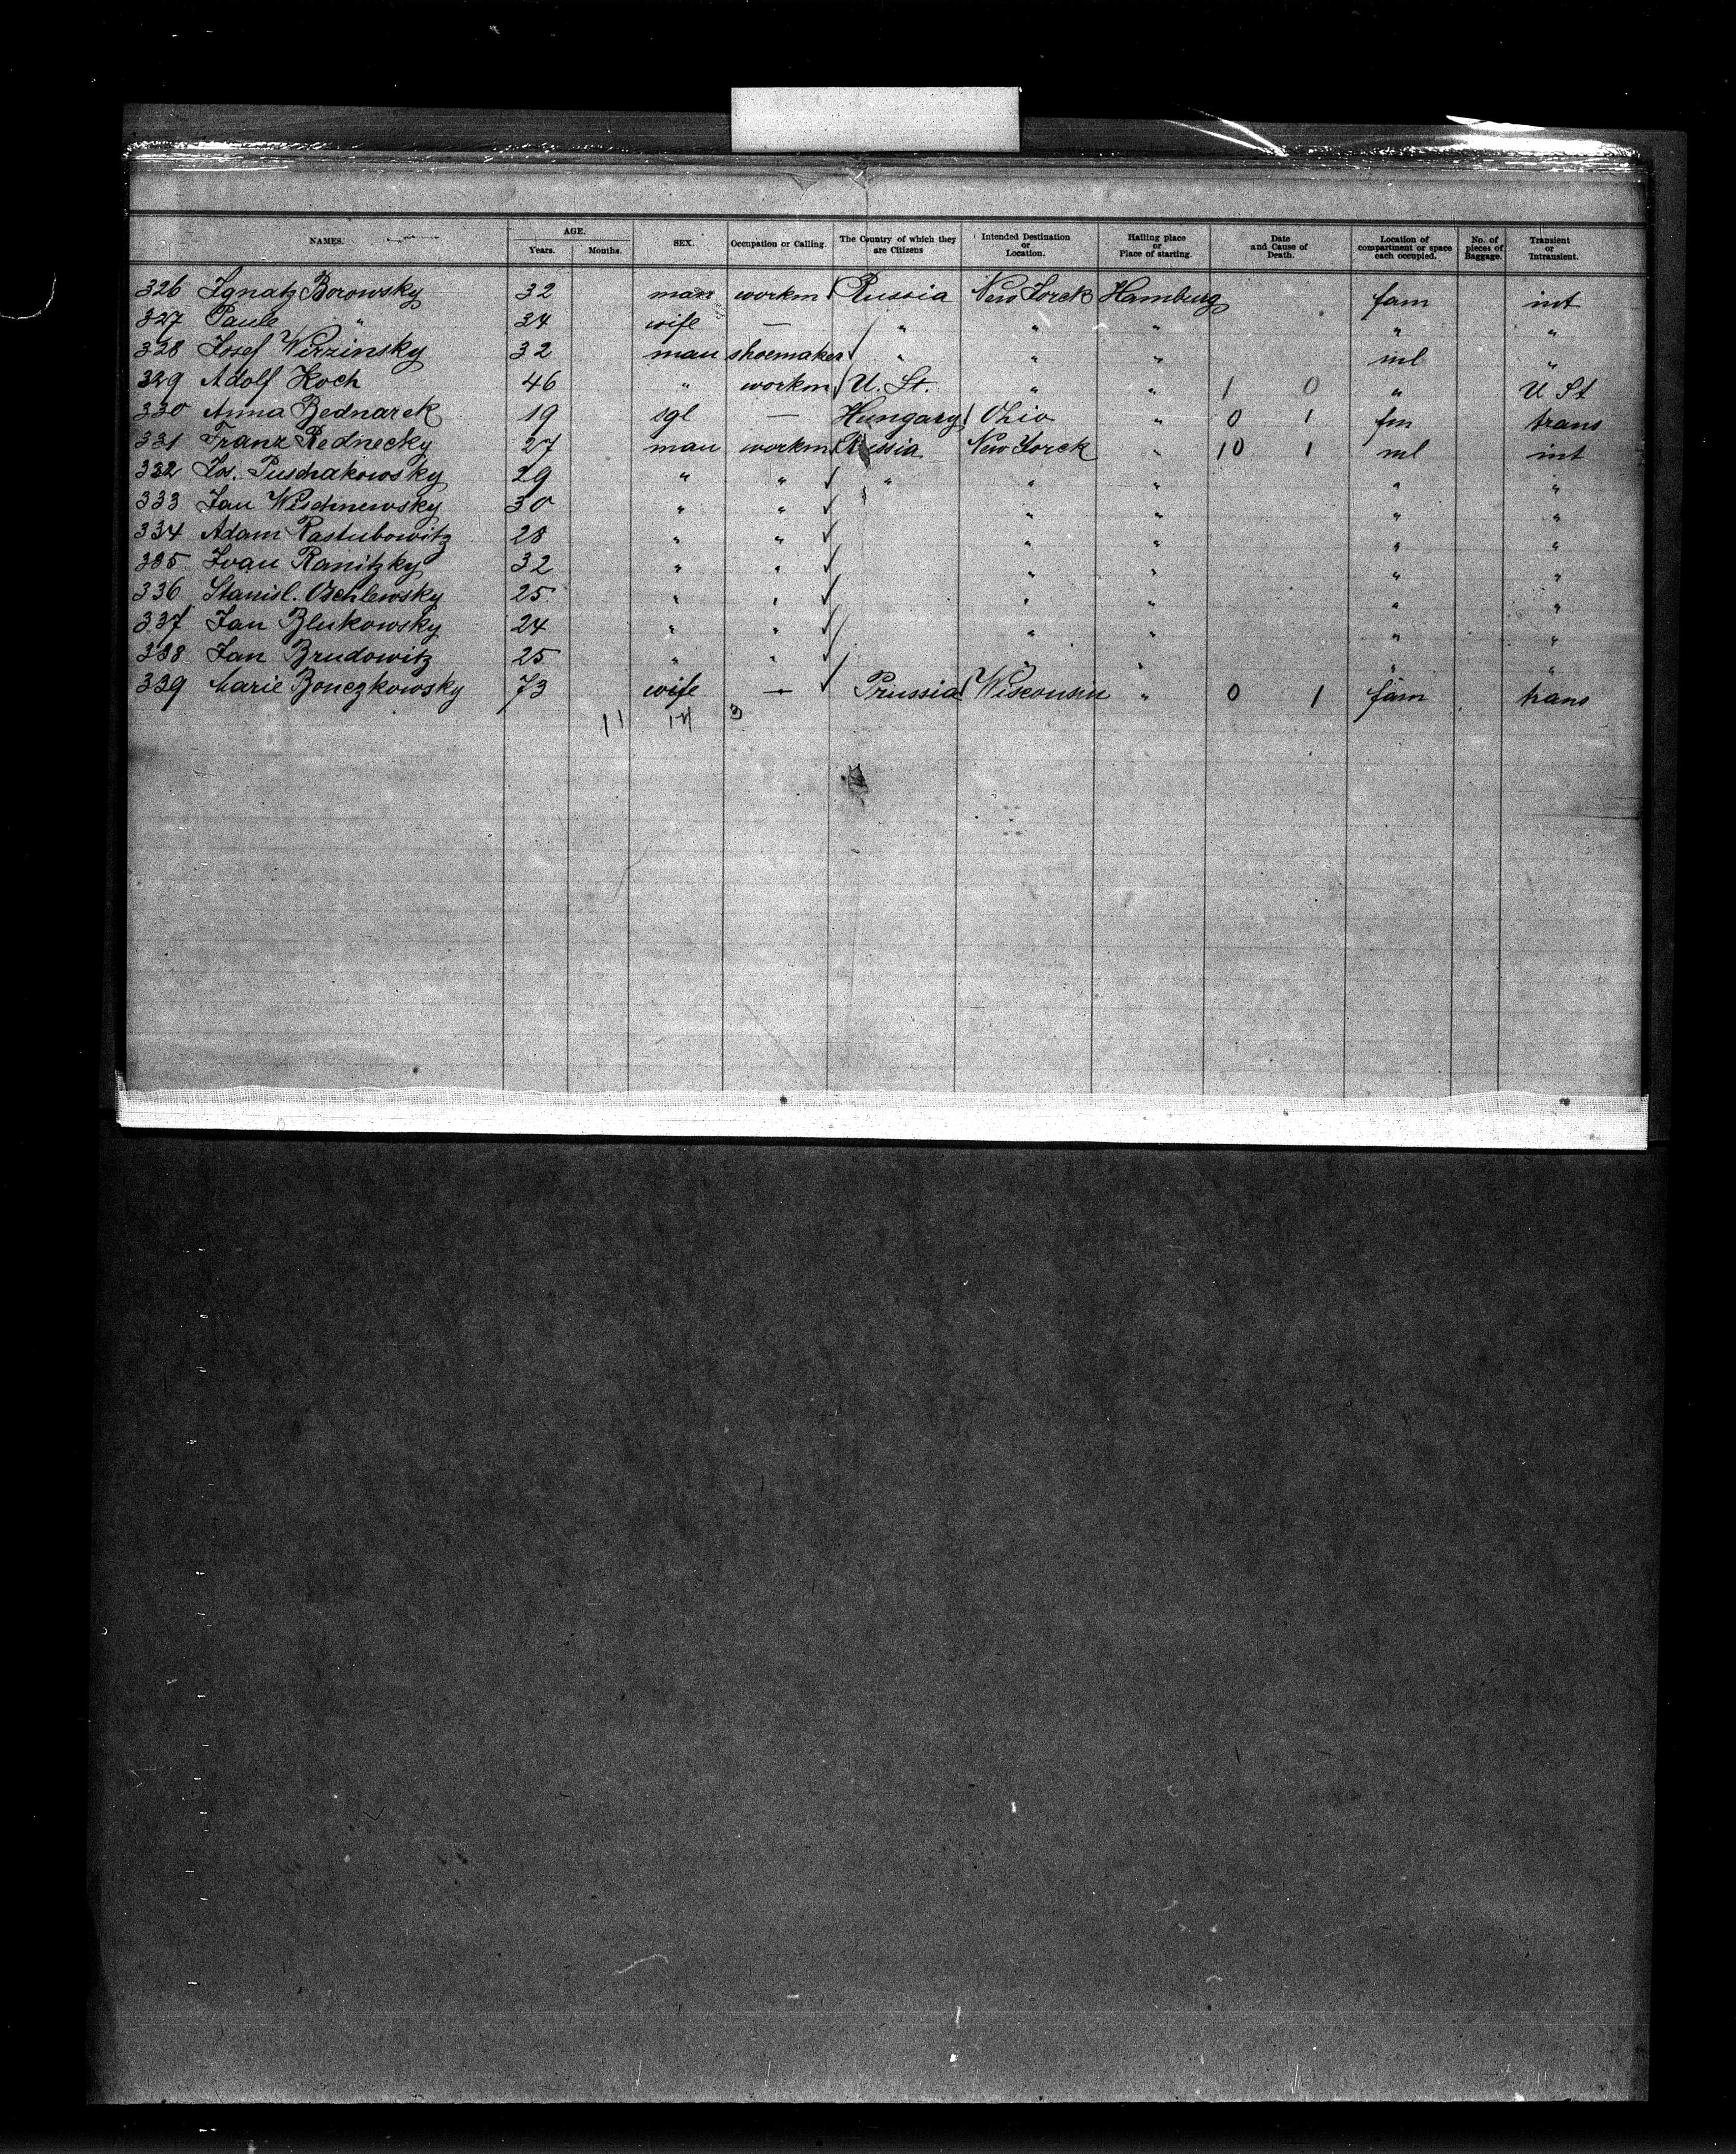 NAMES. AGE. Years. Months. SEX. Occupation or Calling. The Country of which they are Citizens Intended Destination or Location. Hailing place or Place of starting. Date and Cause of Death. Location of compartment or space each occupied. No. of pieces of Baggage. Transient or Intransient.
326 Ignatz Borowsky 32 man workm Russia New Yorck Hamburg fam int
327 Paule " 34 wife — " " " " "
328 Josef Wirzinsky 32 man shoemaker " " " ml "
329 Adolf Koch 46 " workm U. St. " " 1 0 " U St
330 Anna Bednarek 19 sgl — Hungary Ohio " 0 1 fm trans
331 Franz Rednecky 27 man workm Russia New Yorck " 10 1 ml int
332 Jos. Puschakowsky 29 " " " " " " "
333 Jan Wischnewsky 30 " " " " " "
334 Adam Rastubowitz 28 " " " " " "
335 Ivan Ranitzky 32 " " " " " "
336 Stanisl. Oschlewsky 25 " " " " " "
337 Jan Blukowsky 24 " " " " " "
338 Jan Brudowitz 25 " " " " " "
339 Marie Bonczkowsky 73 wife — Prussia Wisconsin " 0 1 fam trans
11 14 3